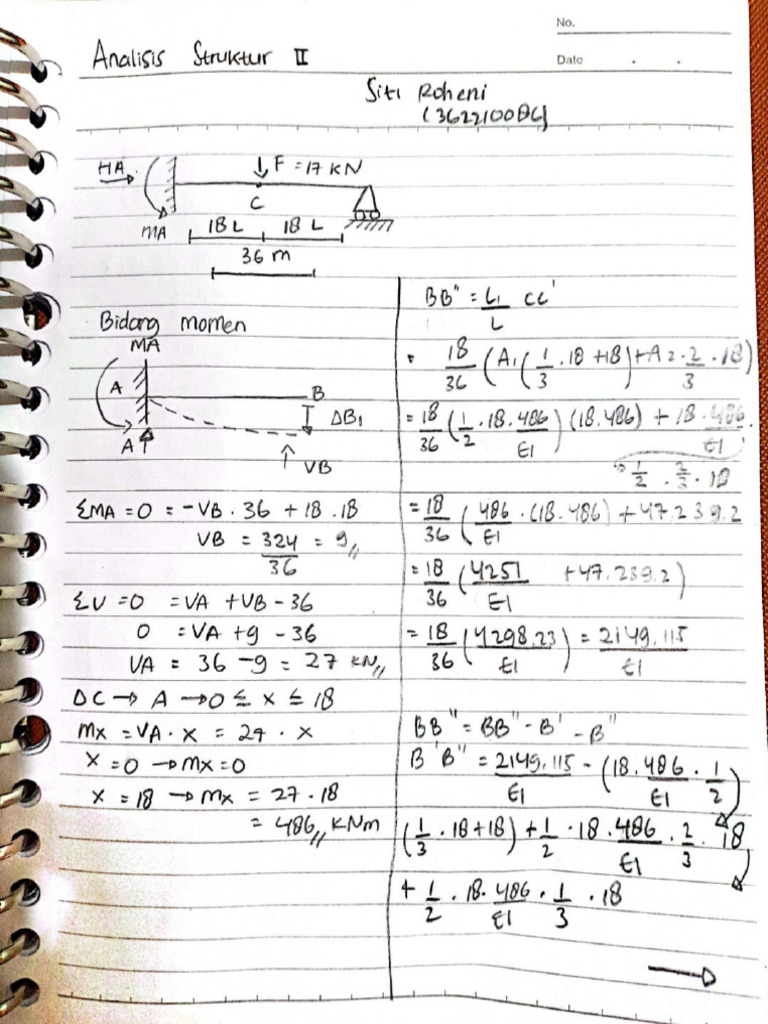 No.
Date
Analisis Struktur II
Siti Roheni
HA
F = 17 KN
C
MA
18 L 18 L
36 m
Bidang momen
MA
A
B
ΔB₁
A
VB
ΣMA = 0 = -VB . 36 + 18 . 18
VB = 324/36 = 9 //
ΣV = 0 = VA + VB - 36
0 = VA + 9 - 36
VA = 36 - 9 = 27 KN //
DC → A → 0 ≤ x ≤ 18
Mx = VA . x = 27 . x
x = 0 → Mx = 0
x = 18 → Mx = 27 . 18
= 486 // KNm
BB" = L₁/L CC'
= 18/36 (A₁ (1/3 . 18 + 18) + A2 . 2/3 . 18)
= 18/36 (1/2 . 18 . 486/EI) (18 . 486) + 18 . 486/EI
1/2 . 2/3 . 18
= 18/36 (486/EI . (18 . 486) + 47.239.2
= 18/36 (4251/EI + 47.239.2)
= 18/36 (4298.23/EI) = 2149.115/EI
BB" = BB" - B' - B"
B'B" = 2149.115/EI - (18 . 486/EI . 1/2)
(1/3 . 18 + 18) + 1/2 . 18 . 486/EI . 2/3 . 18
+ 1/2 . 18 . 486/EI . 1/3 . 18